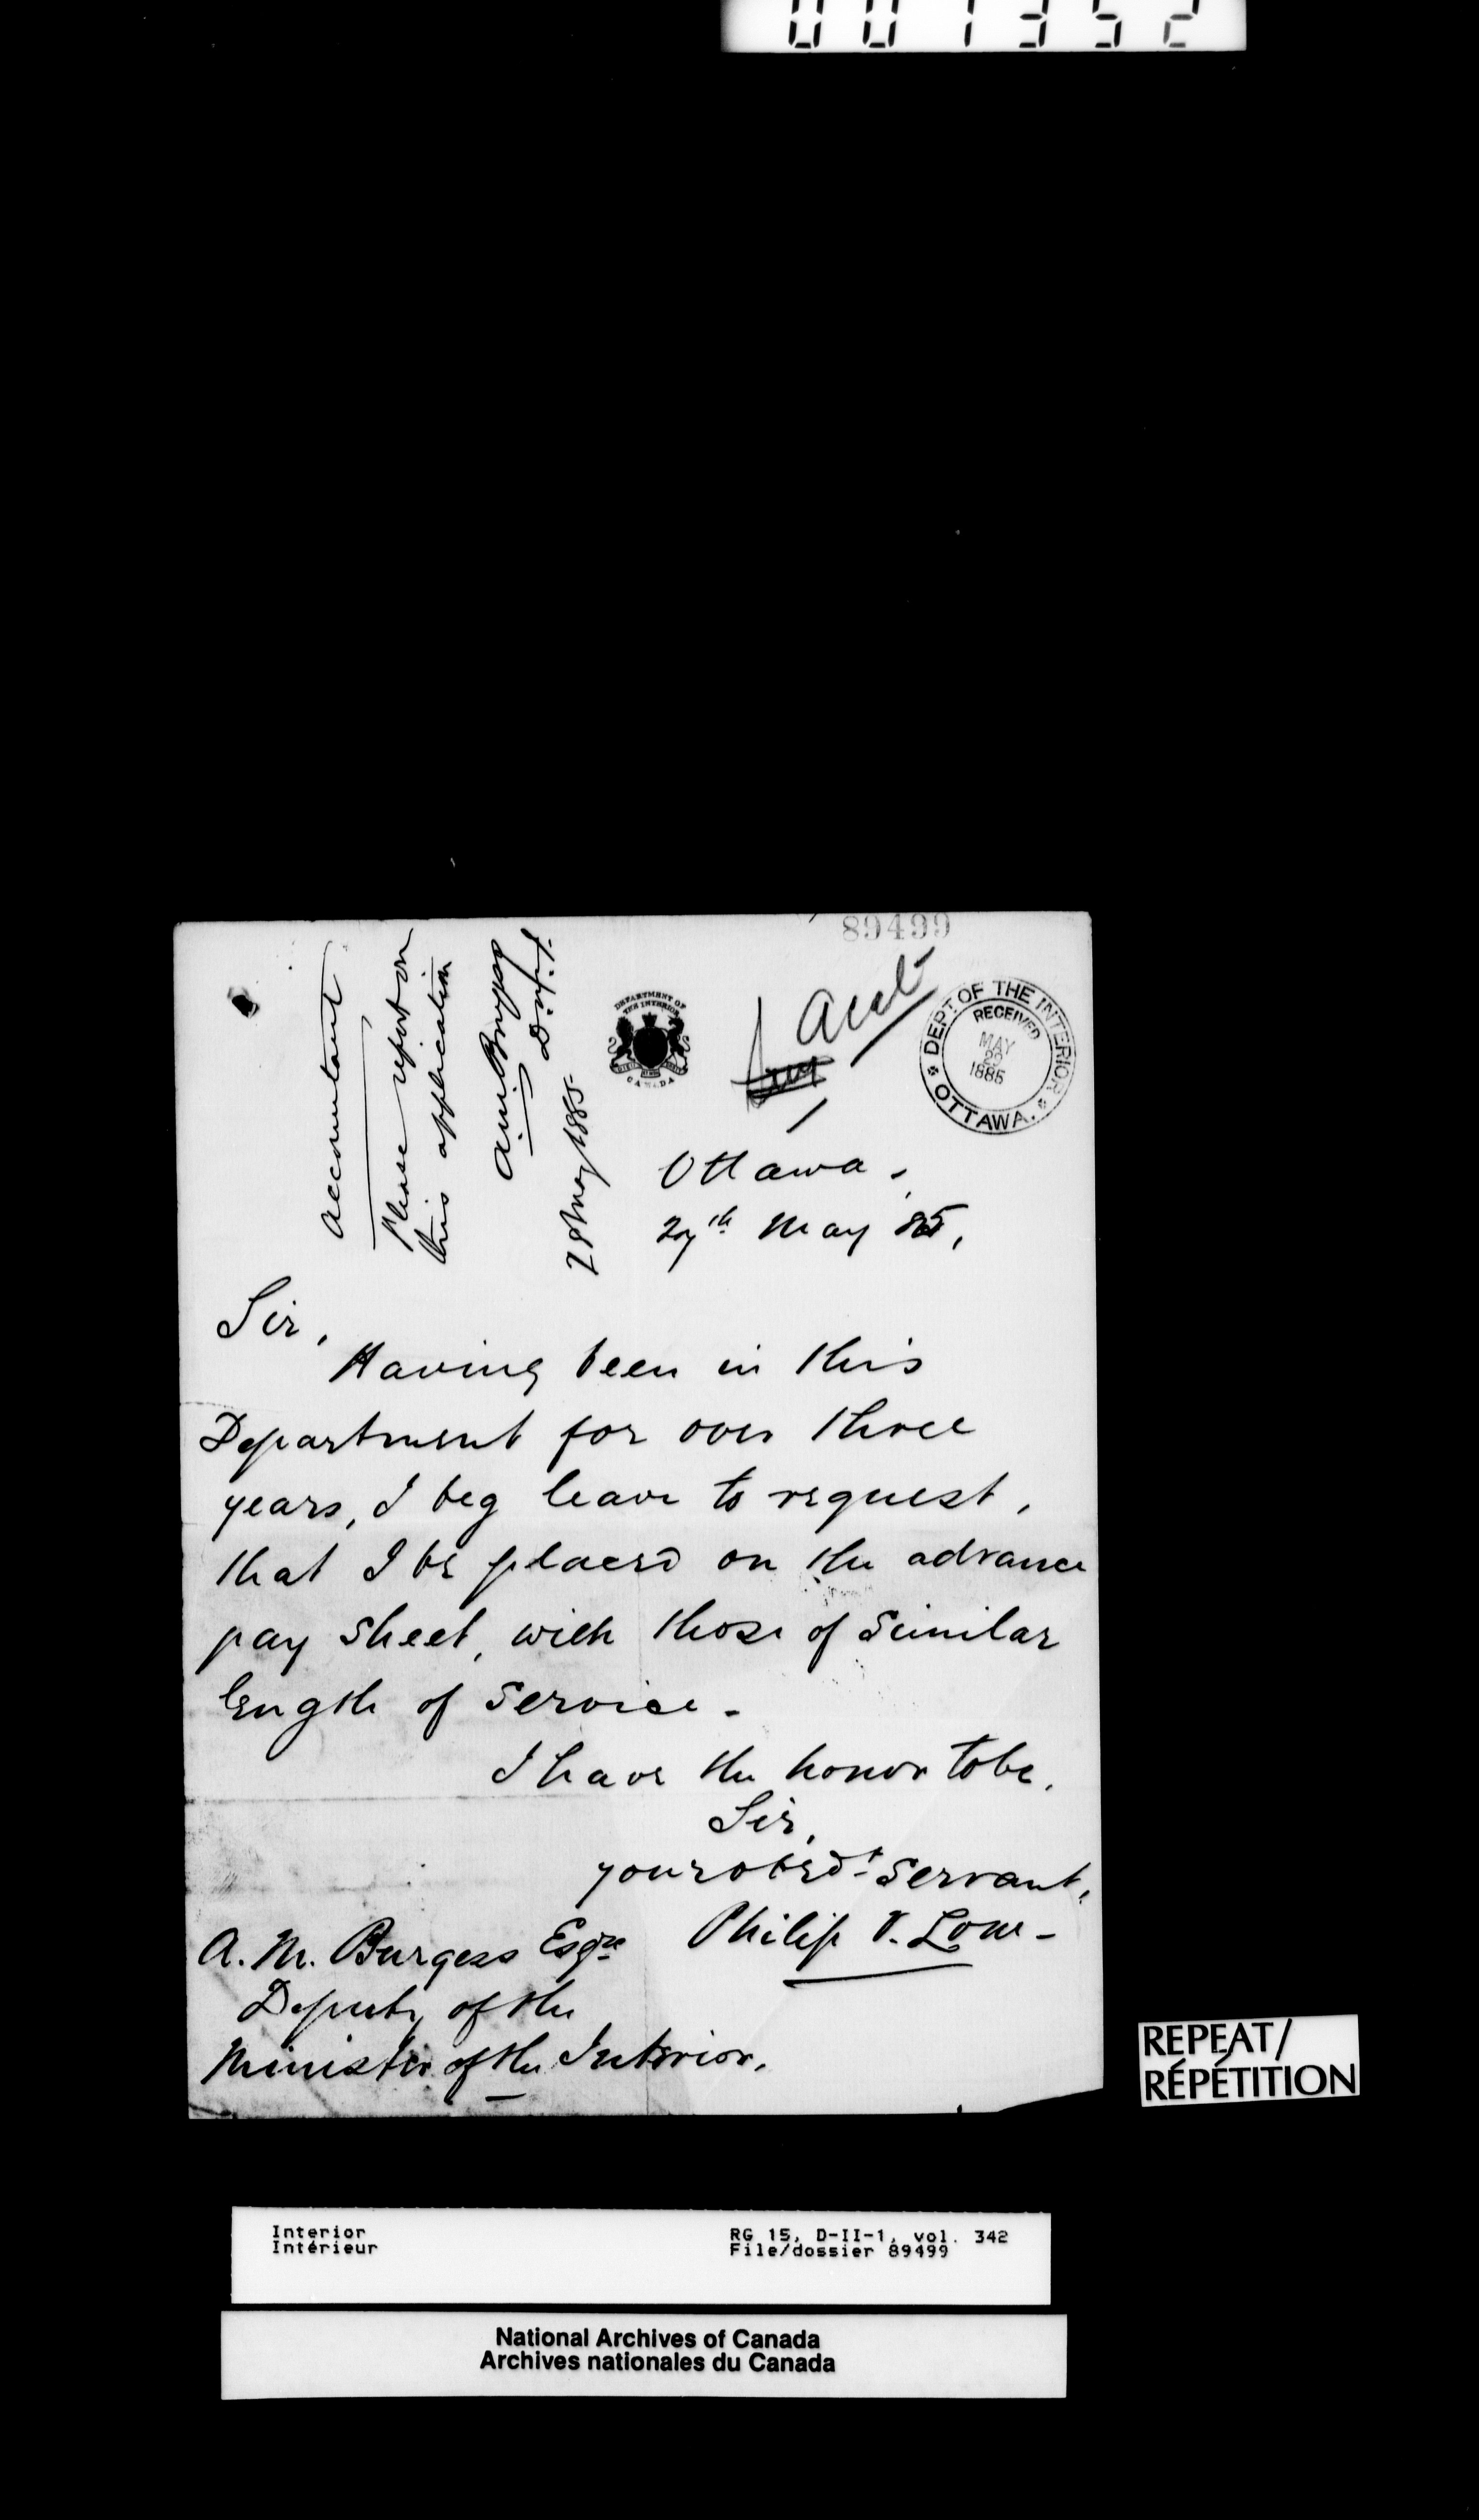 001352
89499
Accountant
Please report on
this application
A.M. Burgess
D. of I.
28 May 1885
DEPARTMENT OF
THE INTERIOR
CANADA
Acct
DEPT. OF THE INTERIOR
RECEIVED
MAY
29
1885
OTTAWA.
Ottawa.
27th May 85,
Sir,
Having been in this
Department for over three
years, I beg leave to request,
that I be placed on the advance
pay sheet, with those of similar
length of service.
I have the honor to be,
Sir,
your obedt servant,
Philip V. Low
A. M. Burgess Esqre
Deputy of the
Minister of the Interior.
REPEAT/
RÉPÉTITION
Interior RG 15, D-II-1, vol. 342
Intérieur File/dossier 89499
National Archives of Canada
Archives nationales du Canada